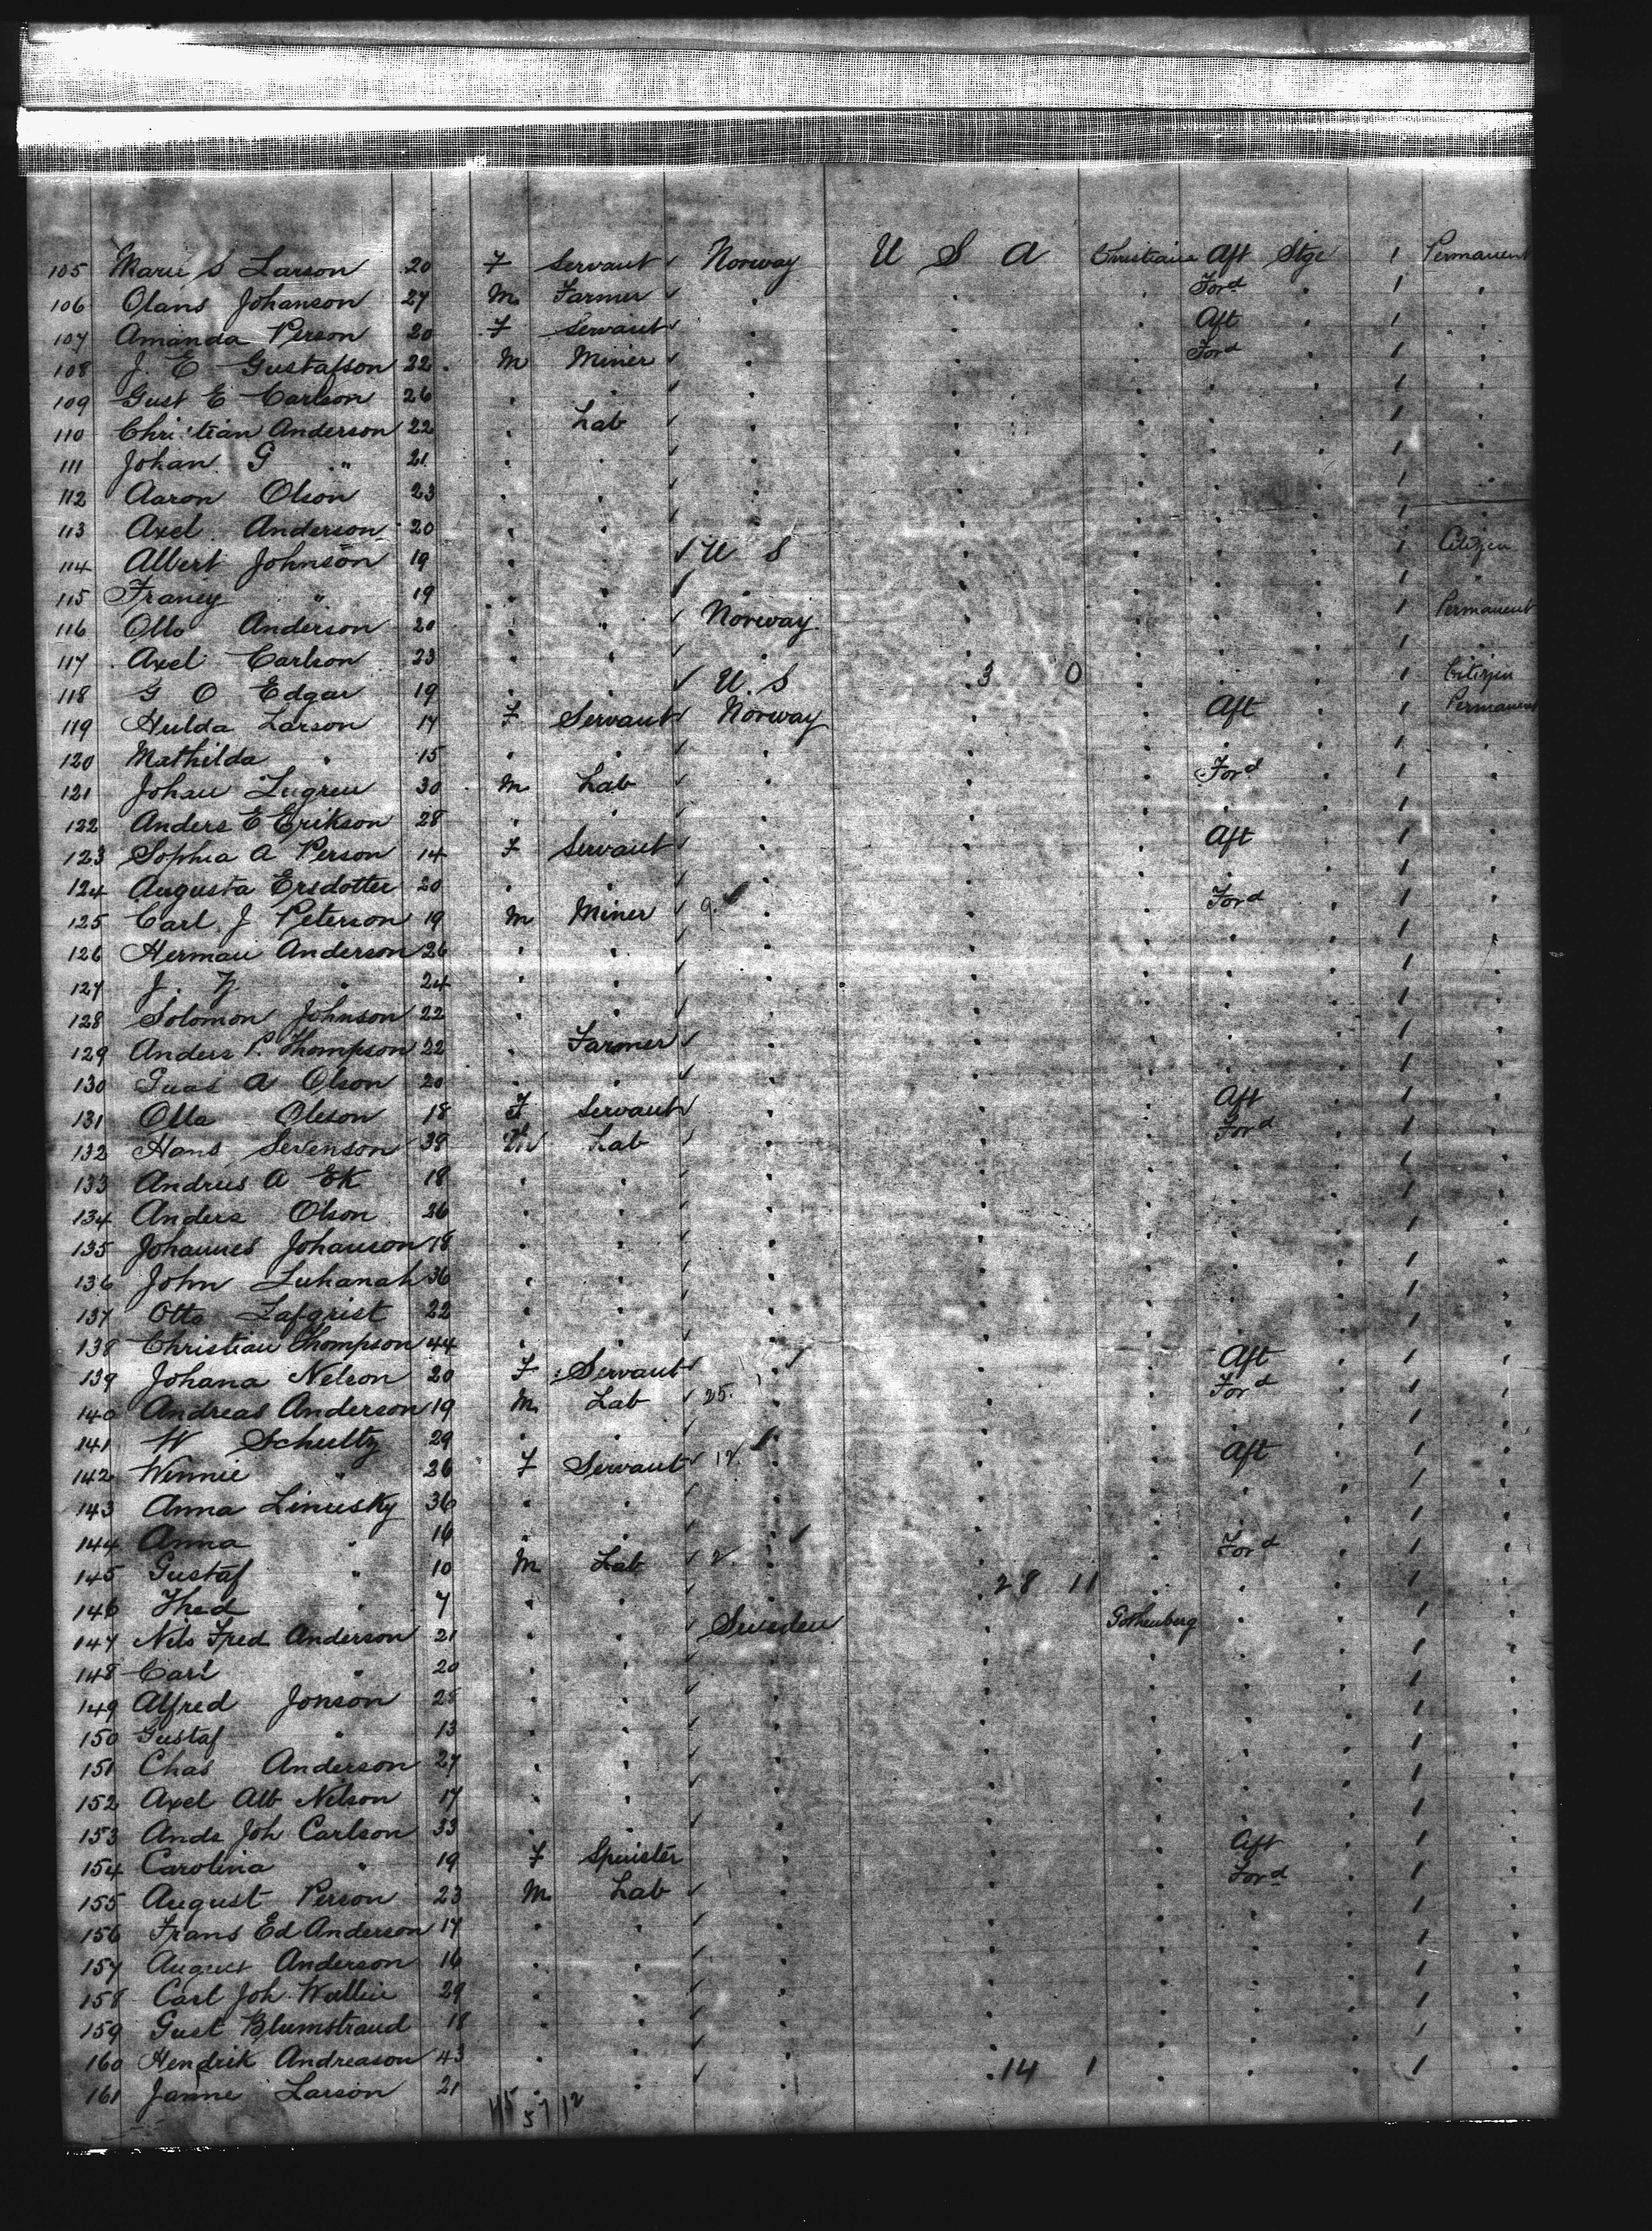 105 Marie S Larson 20 F Servant Norway U S A Christiania Aft Stge 1 Permanent
106 Olans Johanson 27 M Farmer " " " Ford " 1 "
107 Amanda Person 20 F Servant " " " Aft " 1 "
108 J. E Gustafson 22 M Miner " " " Ford " 1 "
109 Gust E Carlson 26 " " " " " " " 1 "
110 Christian Anderson 22 " Lab " " " " " 1 "
111 Johan G " 21 " " " " " " " 1 "
112 Aaron Olson 23 " " " " " " " 1 "
113 Axel Anderson 20 " " " " " " " 1 "
114 Albert Johnson 19 " " U S " " " " 1 Citizen
115 Franey " 19 " " " " " " " 1 "
116 Otto Anderson 20 " " Norway " " " " 1 Permanent
117 Axel Carlson 23 " " " " " " " 1 "
118 G O Edgar 19 " " U. S 3 0 " " " 1 Citizen
119 Hulda Larson 17 F Servant Norway " " Aft " 1 Permanent
120 Mathilda " 15 " " " " " " " 1 "
121 Johan Lugren 30 M Lab " " " Ford " 1 "
122 Anders E Erikson 28 " " " " " " " 1 "
123 Sophia A Person 14 F Servant " " " Aft " 1 "
124 Augusta Ersdotter 20 " " " " " " " 1 "
125 Carl J Peterson 19 M Miner 9. " " " Ford " 1 "
126 Herman Anderson 26 " " " " " " " 1 "
127 J. " 24 " " " " " " " 1 "
128 Solomon Johnson 22 " " " " " " " 1 "
129 Anders P. Thompson 22 " Farmer " " " " " 1 "
130 A Olson 20 " " " " " " " 1 "
131 Olla Oleson 18 F Servant " " " Aft " 1 "
132 Hans Sevenson 38 M Lab " " " Ford " 1 "
133 Andrus A Ek 18 " " " " " " " 1 "
134 Anders Olson 26 " " " " " " " 1 "
135 Johannes Johanson 18 " " " " " " " 1 "
136 John Luhanah 36 " " " " " " " 1 "
137 Otto Lafqrist 22 " " " " " " " 1 "
138 Christian Thompson 44 " " " " " " " 1 "
139 Johana Nelson 20 F Servant " " " Aft " 1 "
140 Andreas Anderson 19 M Lab 25. " " " Ford " 1 "
141 W Schultz 29 " " " " " " " 1 "
142 Winnie " 26 F Servant 12. " " " Aft " 1 "
143 Anna Linusky 36 " " " " " " " 1 "
144 Anna " 16 " " " " " " " 1 "
145 Gustaf " 10 M Lab 2. " " " Ford " 1 "
146 Thed " 7 " " " 28 11 " " " 1 "
147 Nils Fred Anderson 21 " " Sweden " Gothenberg " " 1 "
148 Carl " 20 " " " " " " " 1 "
149 Alfred Jonson 25 " " " " " " " 1 "
150 Gustaf " 13 " " " " " " " 1 "
151 Chas Anderson 27 " " " " " " " 1 "
152 Axel Alb Nilson 17 " " " " " " " 1 "
153 Ands Joh Carlson 33 " " " " " " " 1 "
154 Carolina " 19 F Spinster " " " Aft " 1 "
155 August Person 23 M Lab " " " Ford " 1 "
156 Frans Ed Anderson 17 " " " " " " " 1 "
157 August Anderson 16 " " " " " " " 1 "
158 Carl Joh Wallin 29 " " " " " " " 1 "
159 Gust Blumstrand 18 " " " " " " " 1 "
160 Hendrik Andreason 43 " " " " " " " 1 "
161 Janne Larson 21 " " " 14 1 " " " 1 "
45 57 12